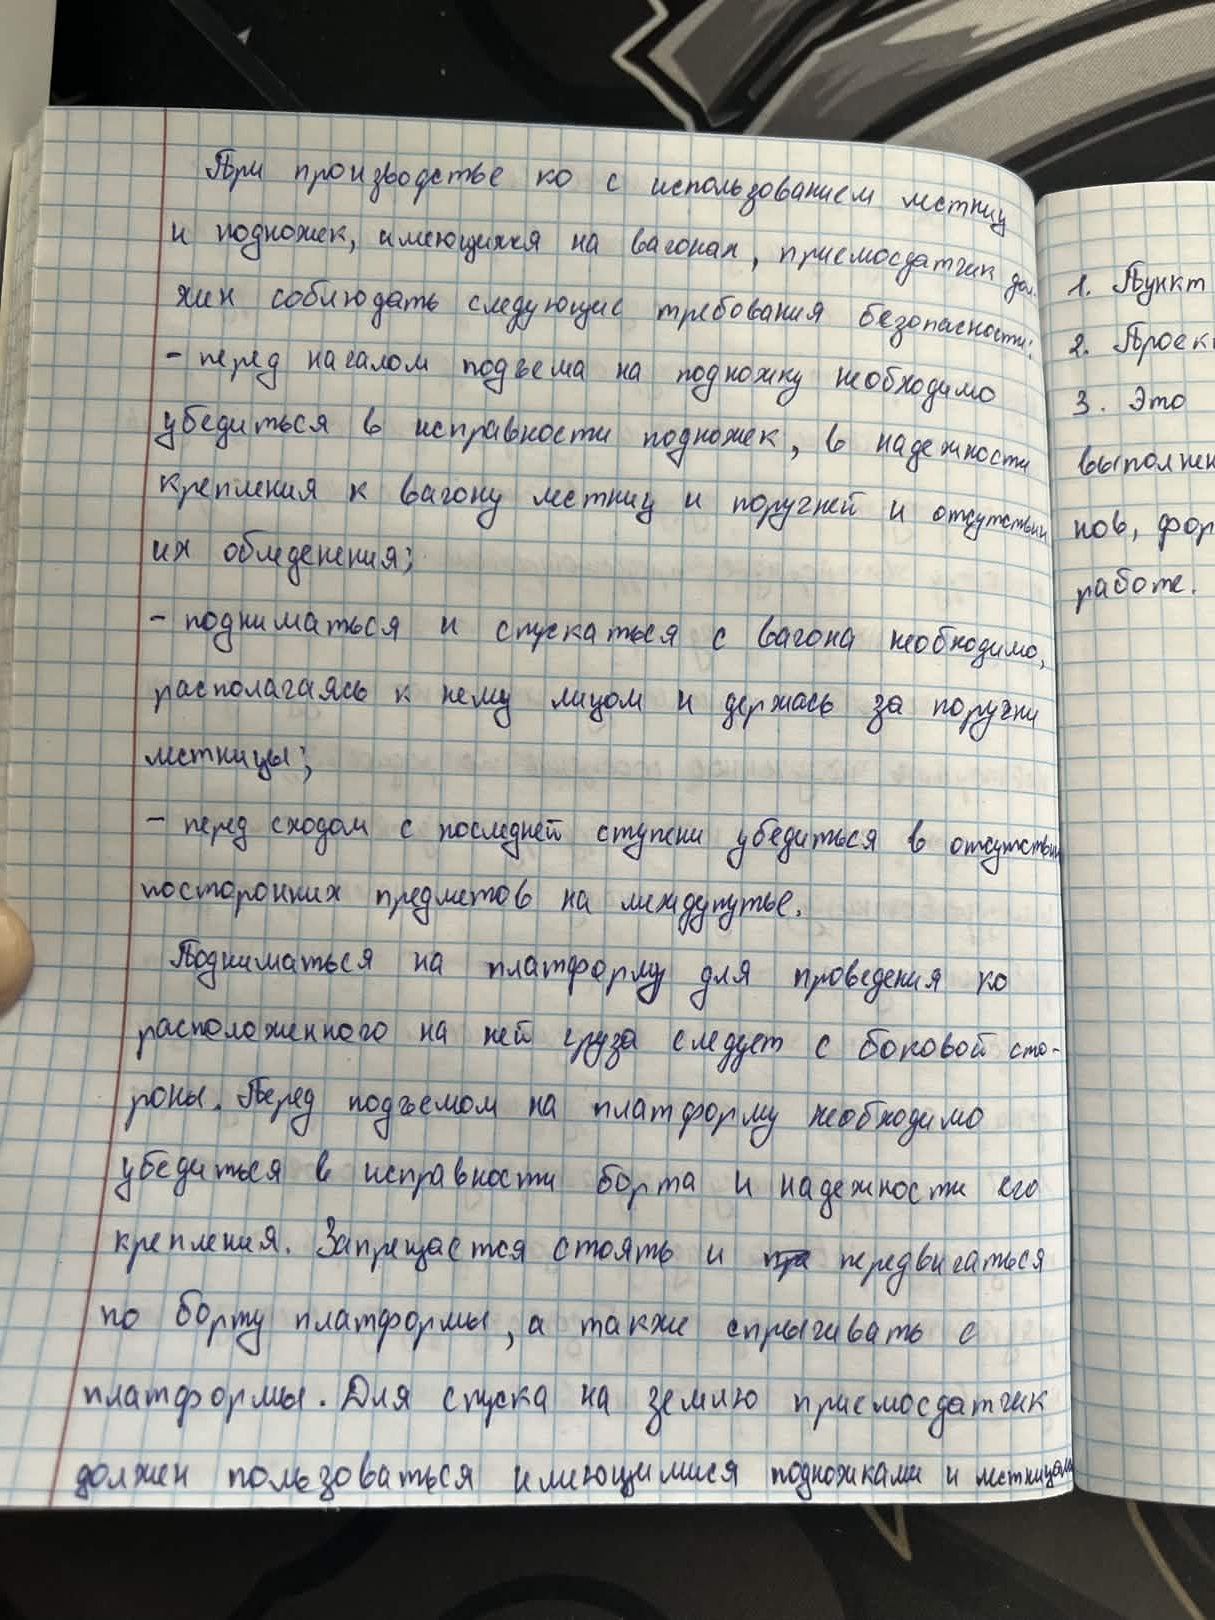 При производстве ко с использованием лестниц
и подножек, имеющихся на вагонах, приемосдатчик дол-
жен соблюдать следующие требования безопасности:
- перед началом подъема на подножку необходимо
убедиться в исправности подножек, в надежности
крепления к вагону лестниц и поручней и отсутствии
их обледенения;
- подниматься и спускаться с вагона необходимо,
располагаясь к нему лицом и держась за поручни
лестницы;
- перед сходом с последней ступени убедиться в отсутствии
посторонних предметов на междупутье.
Подниматься на платформу для проведения ко
расположенного на ней груза следует с боковой сто-
роны. Перед подъемом на платформу необходимо
убедиться в исправности борта и надежности его
крепления. Запрещается стоять и передвигаться
по борту платформы, а также спрыгивать с
платформы. Для спуска на землю приемосдатчик
должен пользоваться имеющимися подножками и лестницами
1. Пункт
2. Проек
3. Это
выполнен
нов, фор
работе.